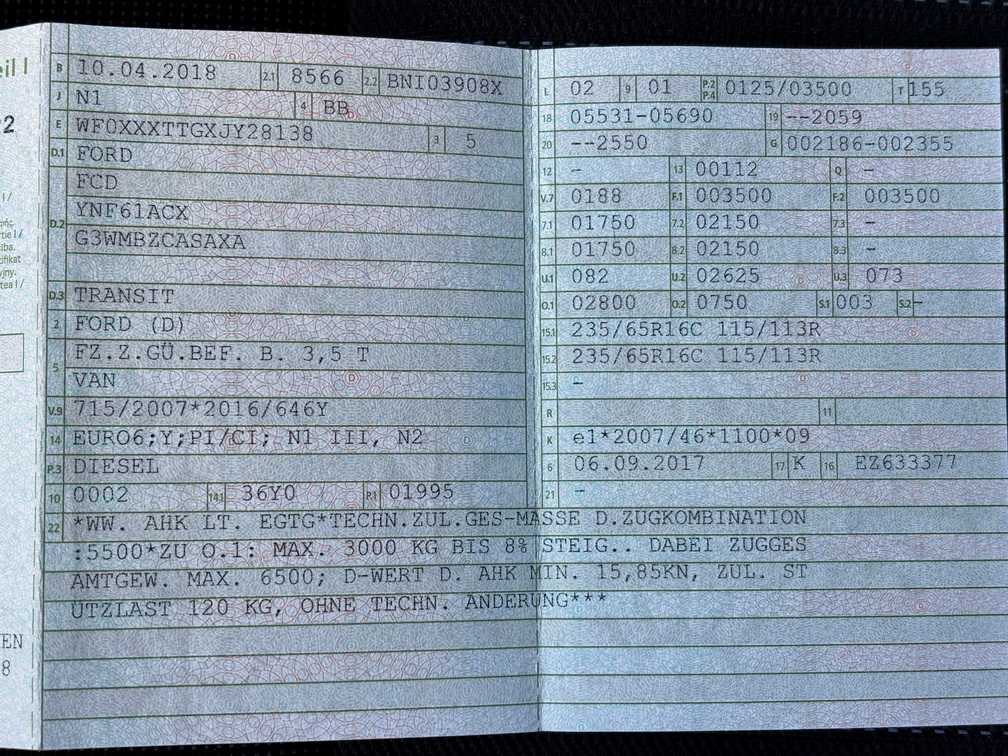 eil I
B 10.04.2018 2.1 8566 2.2 BNI03908X
J N1 4 BB
E WF0XXXTTGXJY28138 3 5
D.1 FORD
FCD
D.2 YNF61ACX
G3WMBZCASAXA
D.3 TRANSIT
2 FORD (D)
5 FZ.Z.GÜ.BEF. B. 3,5 T
VAN
V.9 715/2007*2016/646Y
14 EURO6;Y;PI/CI; N1 III, N2
P.3 DIESEL
10 0002 14.1 36Y0 P.1 01995
L 02 9 01 P.2 P.4 0125/03500 T 155
18 05531-05690 19 --2059
20 --2550 G 002186-002355
12 - 13 00112 Q -
V.7 0188 F.1 003500 F.2 003500
7.1 01750 7.2 02150 7.3 -
8.1 01750 8.2 02150 8.3 -
U.1 082 U.2 02625 U.3 073
O.1 02800 O.2 0750 S.1 003 S.2 -
15.1 235/65R16C 115/113R
15.2 235/65R16C 115/113R
15.3 -
R 11
K e1*2007/46*1100*09
6 06.09.2017 17 K 16 EZ633377
21 -
22 *WW. AHK LT. EGTG*TECHN.ZUL.GES-MASSE D.ZUGKOMBINATION
:5500*ZU O.1: MAX. 3000 KG BIS 8% STEIG.. DABEI ZUGGES
AMTGEW. MAX. 6500; D-WERT D. AHK MIN. 15,85KN, ZUL. ST
ÜTZLAST 120 KG, OHNE TECHN. ÄNDERUNG***
EN
8